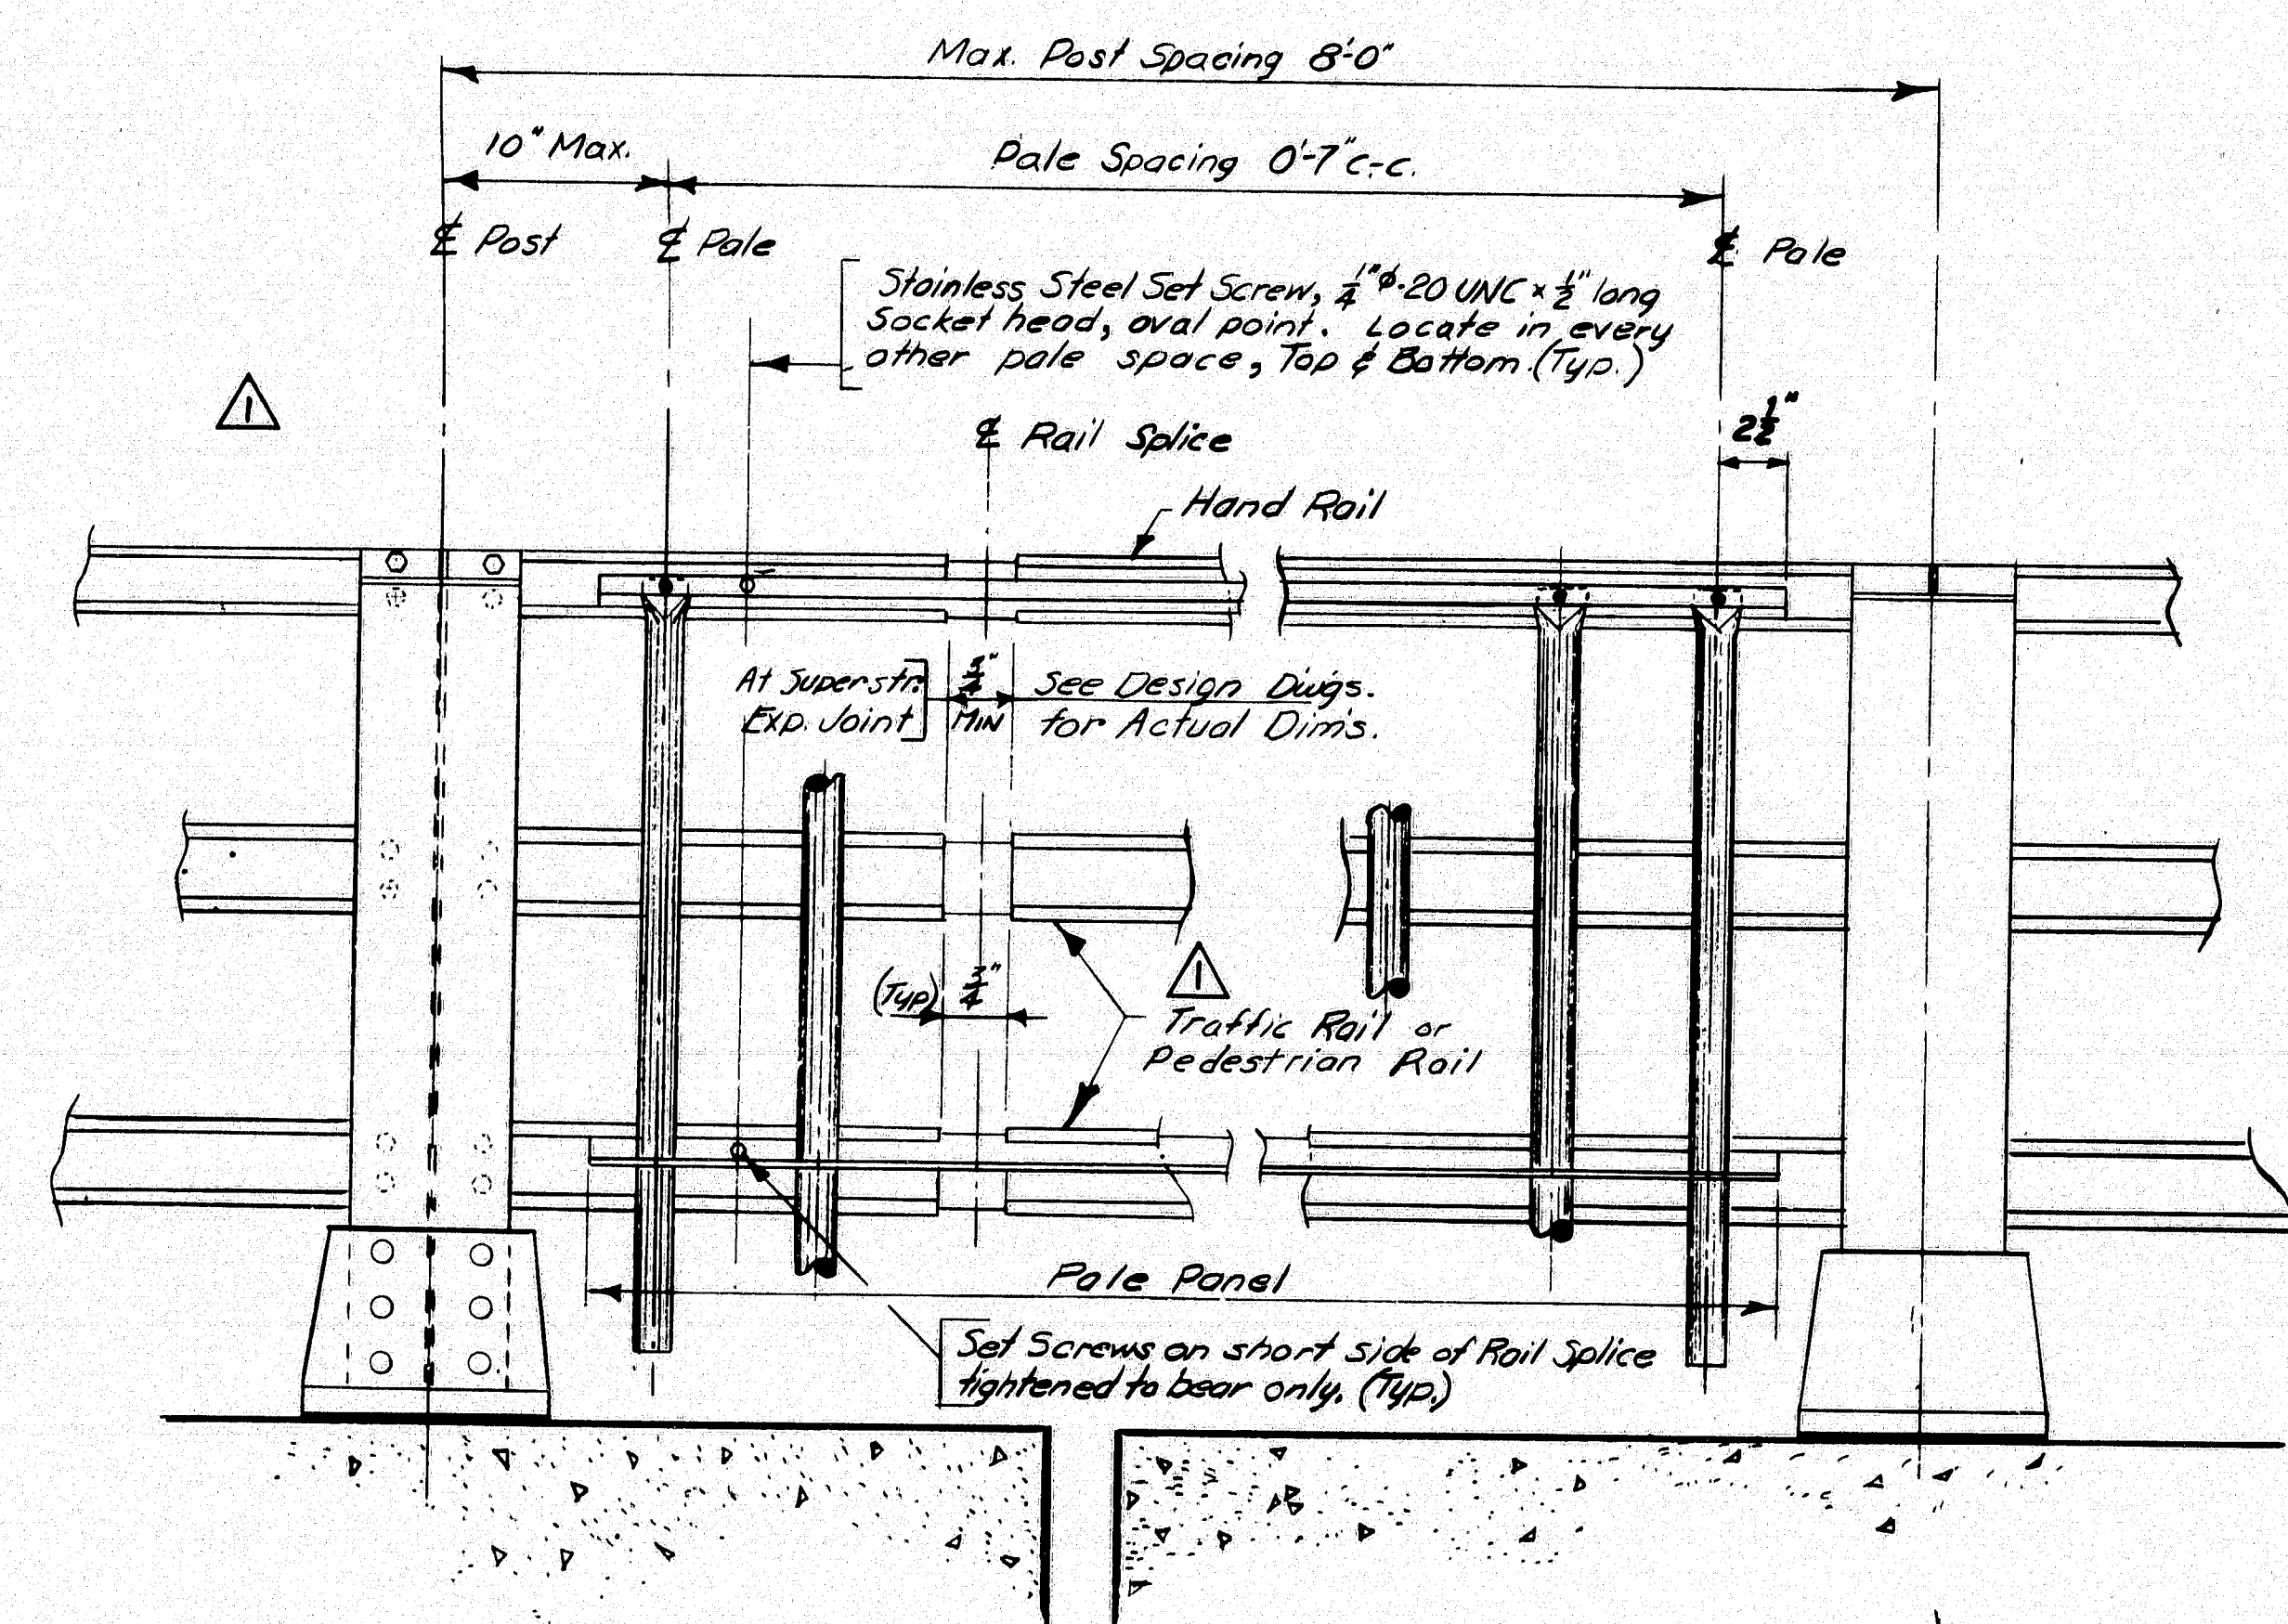 Max. Post Spacing 8'-0"
10" Max.
Pale Spacing 0'-7" c-c.
℄ Post
℄ Pale
℄ Pale
Stainless Steel Set Screw, 1/4"ϕ-20 UNC x 1/2" long
Socket head, oval point. Locate in every
other pale space, Top & Bottom. (Typ.)
1
2 1/2"
℄ Rail Splice
Hand Rail
At Superstr.
Exp. Joint
3/4"
MIN
See Design Dwgs.
for Actual Dim's.
(Typ) 3/4"
1
Traffic Rail or
Pedestrian Rail
Pale Panel
Set Screws on short side of Rail Splice
tightened to bear only. (Typ.)